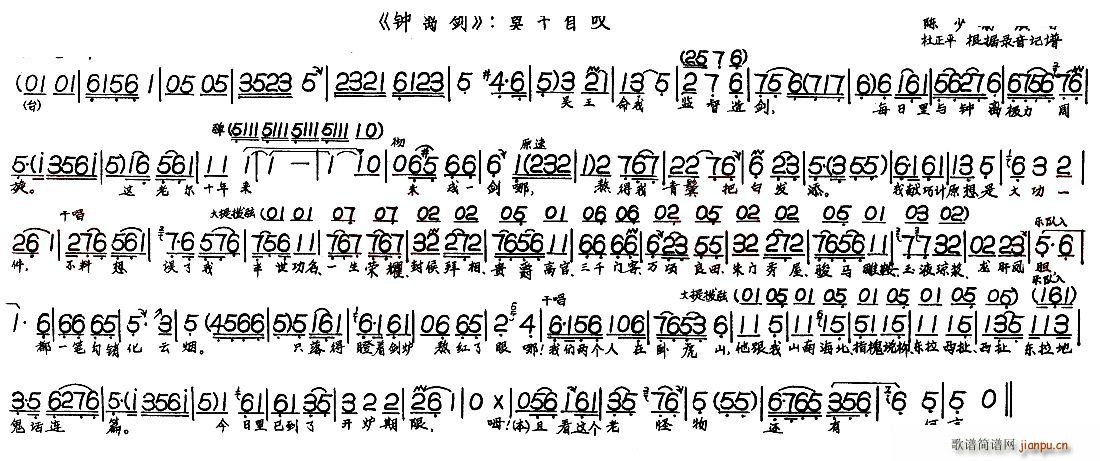 《钟离剑》：莫干自叹
陈少
杜正平 根据录音记谱
(25 7 6)
(01 01 | 6156 1 | 05 05 | 3523 5 | 2321 6123 | 5 4·6 | 5) 3 21 | 13 5 | 2 7 6 | 75 6(717 | 6)6 161 | 56276 | 6756 76
(台) 吴王 命我 监督造剑， 每日里与钟离极力周
弹(5111 5111 5111 5111 10) 彻 原速
5·(1 3561 | 5)16 561 | 11 1 | 1 — | 1 10 | 065 66 | 6 1(232 | 1)2 767 | 22 76 | 6 23 | 5(3 55) | 6161 | 13 5 | 6 3 2
旋。 这老尔十年来 未成一剑哪， 熬得我青鬓把白发添。 我献巧计原想是大功一
干唱 大提拨弦(01 01 07 07 02 02 05 01 06 06 02 05 02 02 05 01 03 02) 乐队入
26 1 | 276 561 | 7·6 576 | 756 11 | 767 767 | 32 272 | 7656 11 | 66 66 | 623 55 | 32 272 | 7656 11 | 77 32 | 02 23 | 5·6
件， 不料想 误了我 半世功名、一生荣耀、封候拜相、贵爵高官、三千门客、万顷良田、朱门秀屋、骏马雕鞍、玉液琼浆、龙肝凤胆，
干唱 大提拨弦(01 05 01 05 01 05 01 05 01 05) 乐队入 (161)
1· 6 | 66 65 | 5 3 | 5 (4566 | 5)5 161 | 6·161 | 06 65 | 2 4 | 6·156 106 | 7653 6 | 115 5 | 1165 | 5115 | 5115 | 135 | 113
都一笔勾销化云烟。 只落得瞪着剑炉熬红了眼哪！我们两个人在卧虎山，他跟我山南海北、指槐说柳、东拉西扯、西扯东拉地
3·5 6276 | 5·(1 3561 | 5)1 6 | 61 135 | 3 2 2 | 2 6 | 1 0 x | 056 161 | 35 76 | 5 (55) | 6765 356 | 6 5 | 5 0 ‖
鬼话连篇。 今日里已到了开炉期限， 呵！(本)且看这个老怪物还有何言
歌谱简谱网 jianpu.cn